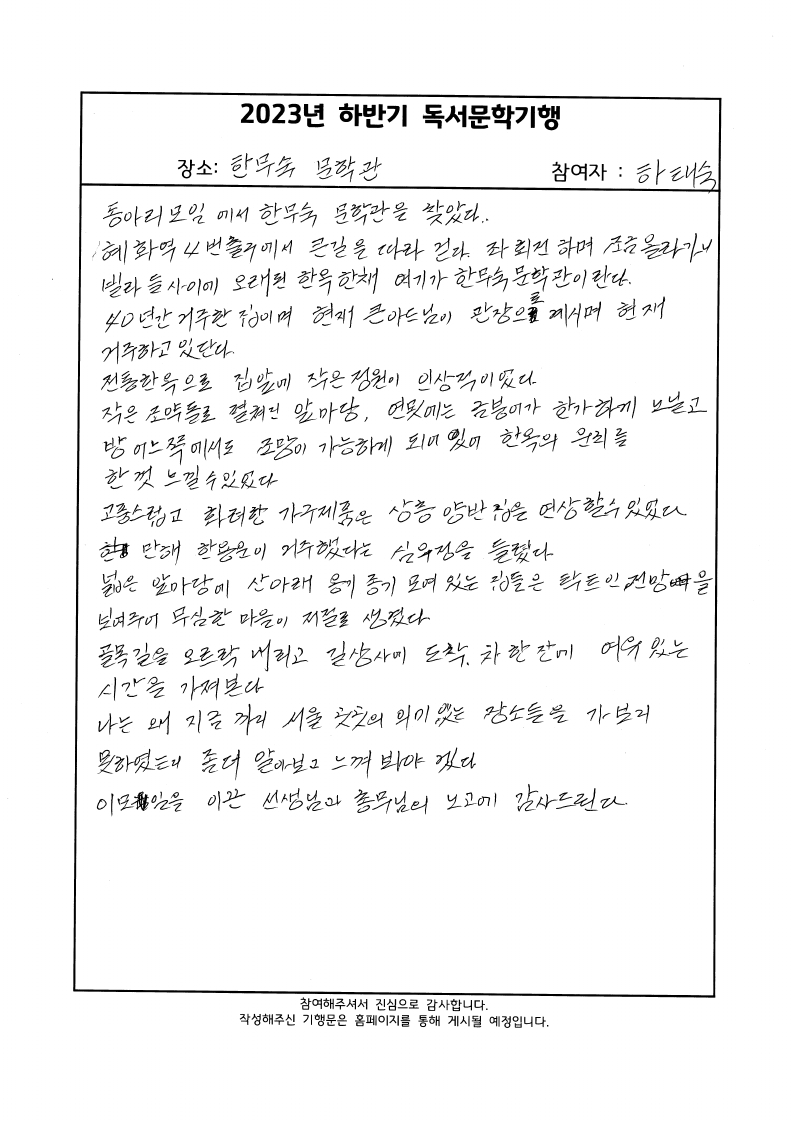 2023년 하반기 독서문학기행
장소: 한무숙 문학관 참여자 : 하태숙
동아리모임 에서 한무숙 문학관을 찾았다..
혜화역 4번출구에서 큰길을 따라 걷다. 좌회전 하며 조금올라가니
빌라들사이에 오래된 한옥한채 여기가 한무숙문학관이란다.
40년간 거주한 집이며 현재 큰아드님이 관장으로 계시며 현재
거주하고 있단다.
전통한옥으로 집앞에 작은정원이 인상적이었다
작은 조약돌로 펼쳐진 앞마당, 연못에는 금붕어가 한가하게 노닐고
방 어느쪽에서도 조망이 가능하게 되어 있어 한옥의 운치를
한껏 느낄수있었다
고풍스럽고 화려한 가구제품은 상층 양반 집을 연상할수있었다
만해 한용운이 거주했다는 심우장을 들렸다
넓은 앞마당에 산아래 옹기종기 모여있는 집들은 탁트인 전망을
보여주어 무심한 마음이 저절로 생겼다
골목길을 오르락 내리고 길상사에 도착, 차한잔에 여유있는
시간을 가져본다
나는 왜 지금 까지 서울 곳곳의 의미있는 장소들을 가보지
못하였는지 좀더 알아보고 느껴 봐야 겠다
이모임을 이끈 선생님과 총무님의 노고에 감사드린다.
참여해주셔서 진심으로 감사합니다.
작성해주신 기행문은 홈페이지를 통해 게시될 예정입니다.